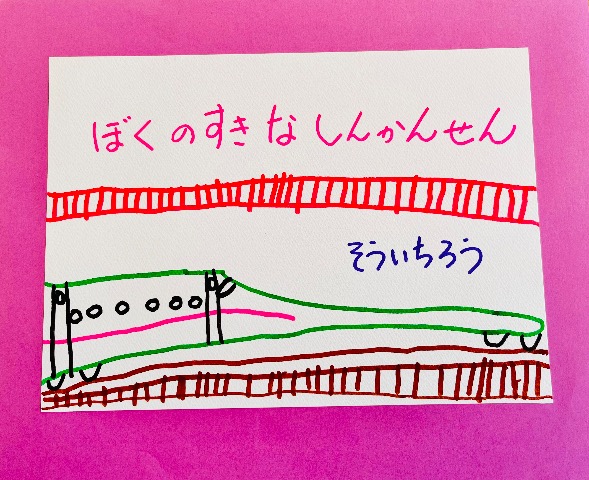 ぼくのすきなしんかんせん
そういちろう